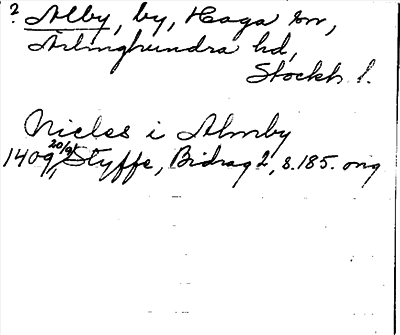 ? Alby, by, Haga sn,
Ärlinghundra hd,
Stockh l.
Niclss i Almby
1409 20/9, Styffe, Bidrag 2, s. 185. orig